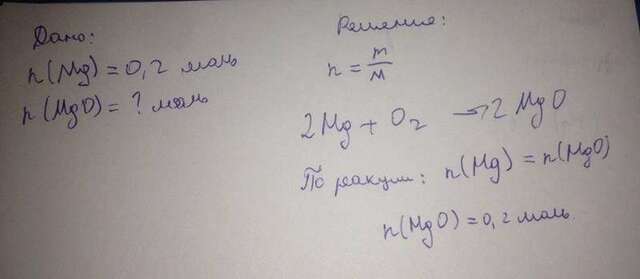 Дано:
n(Mg) = 0,2 моль
n(MgO) = ? моль
Решение:
n = m/M
2Mg + O₂ → 2MgO
По реакции: n(Mg) = n(MgO)
n(MgO) = 0,2 моль